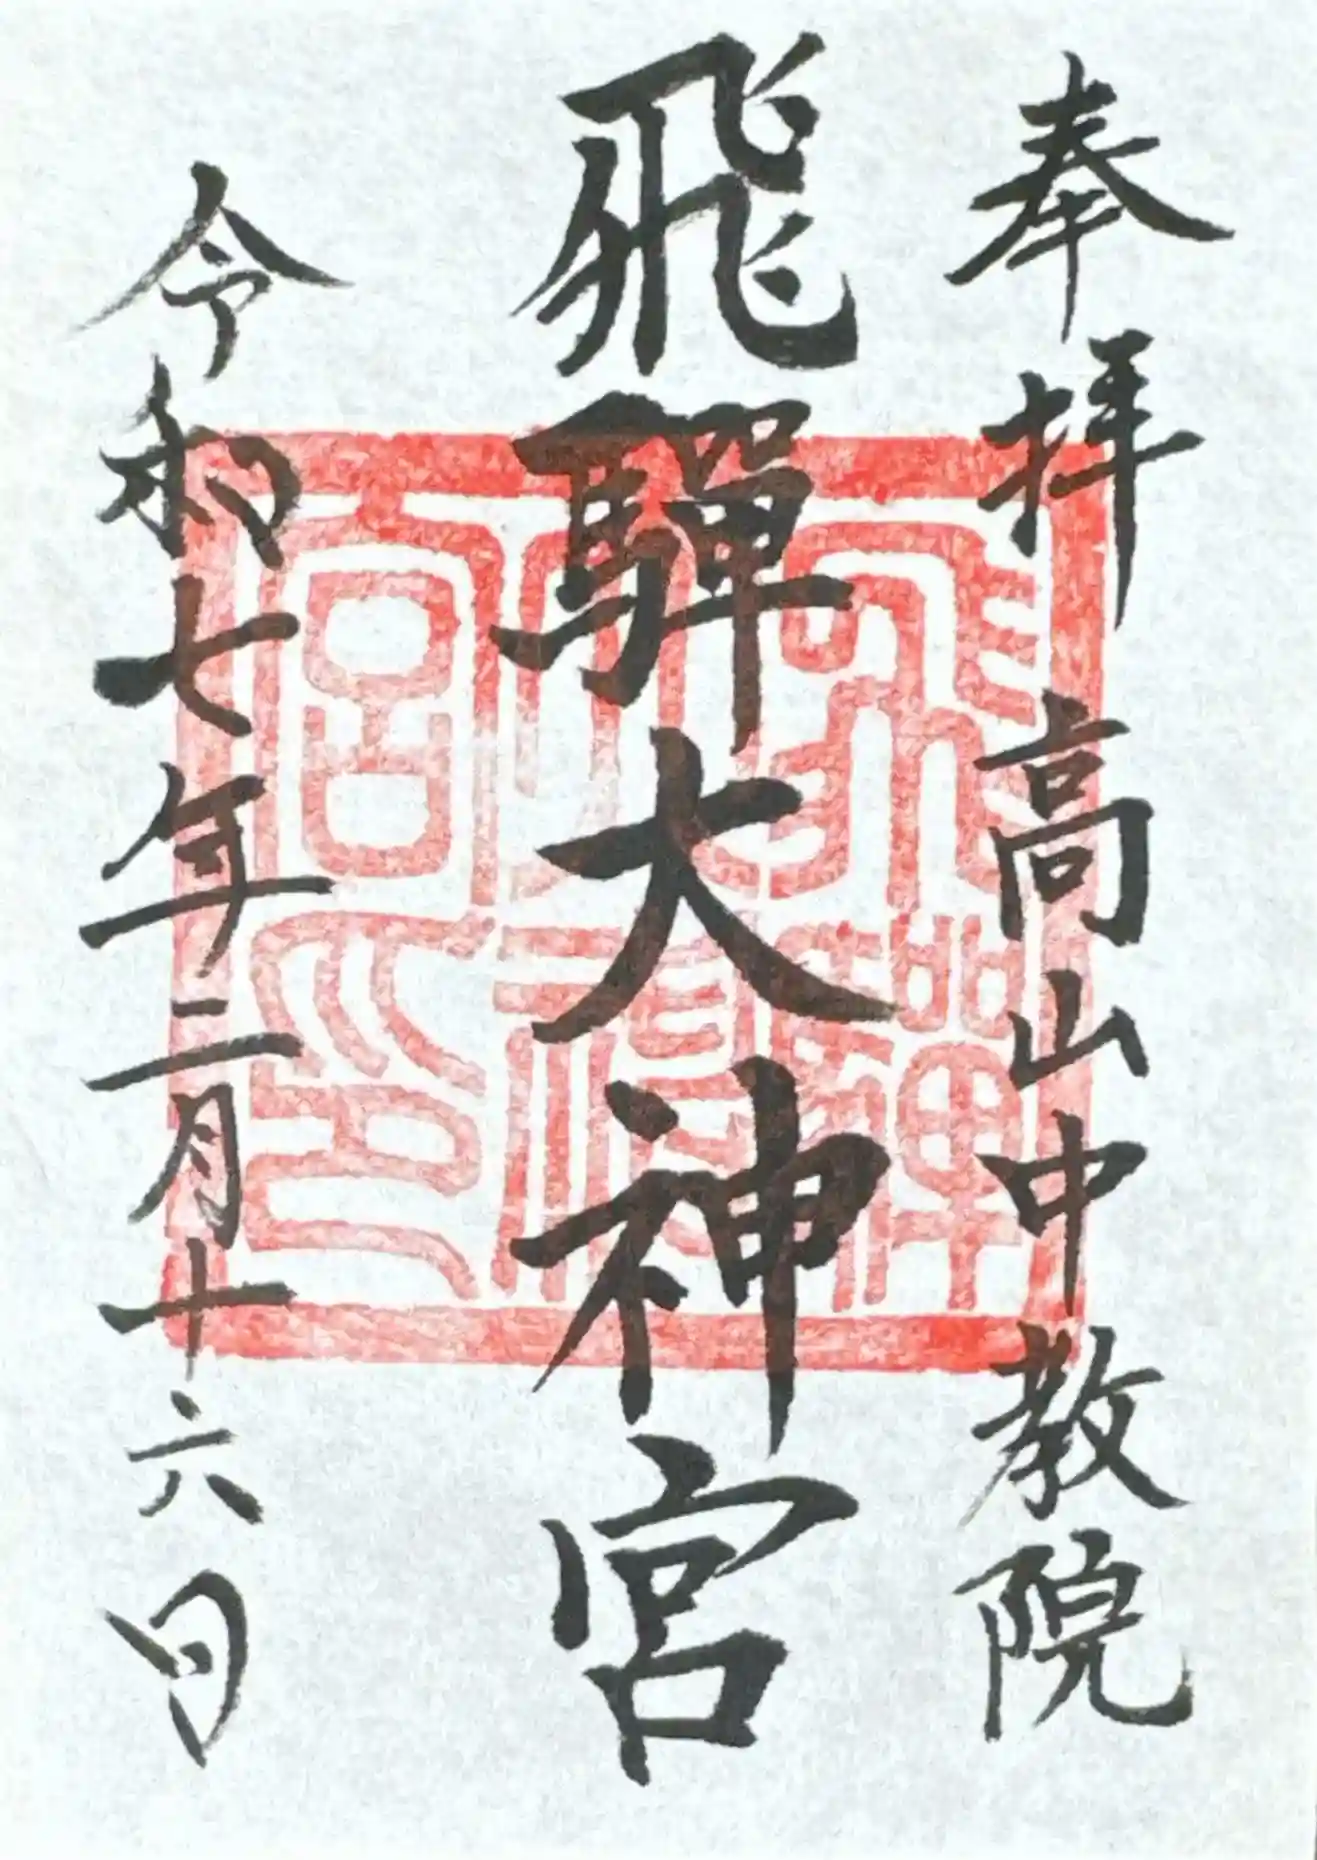 奉拝 高山中教院
飛騨大神宮
令和七年二月十六日
飛騨大神宮印